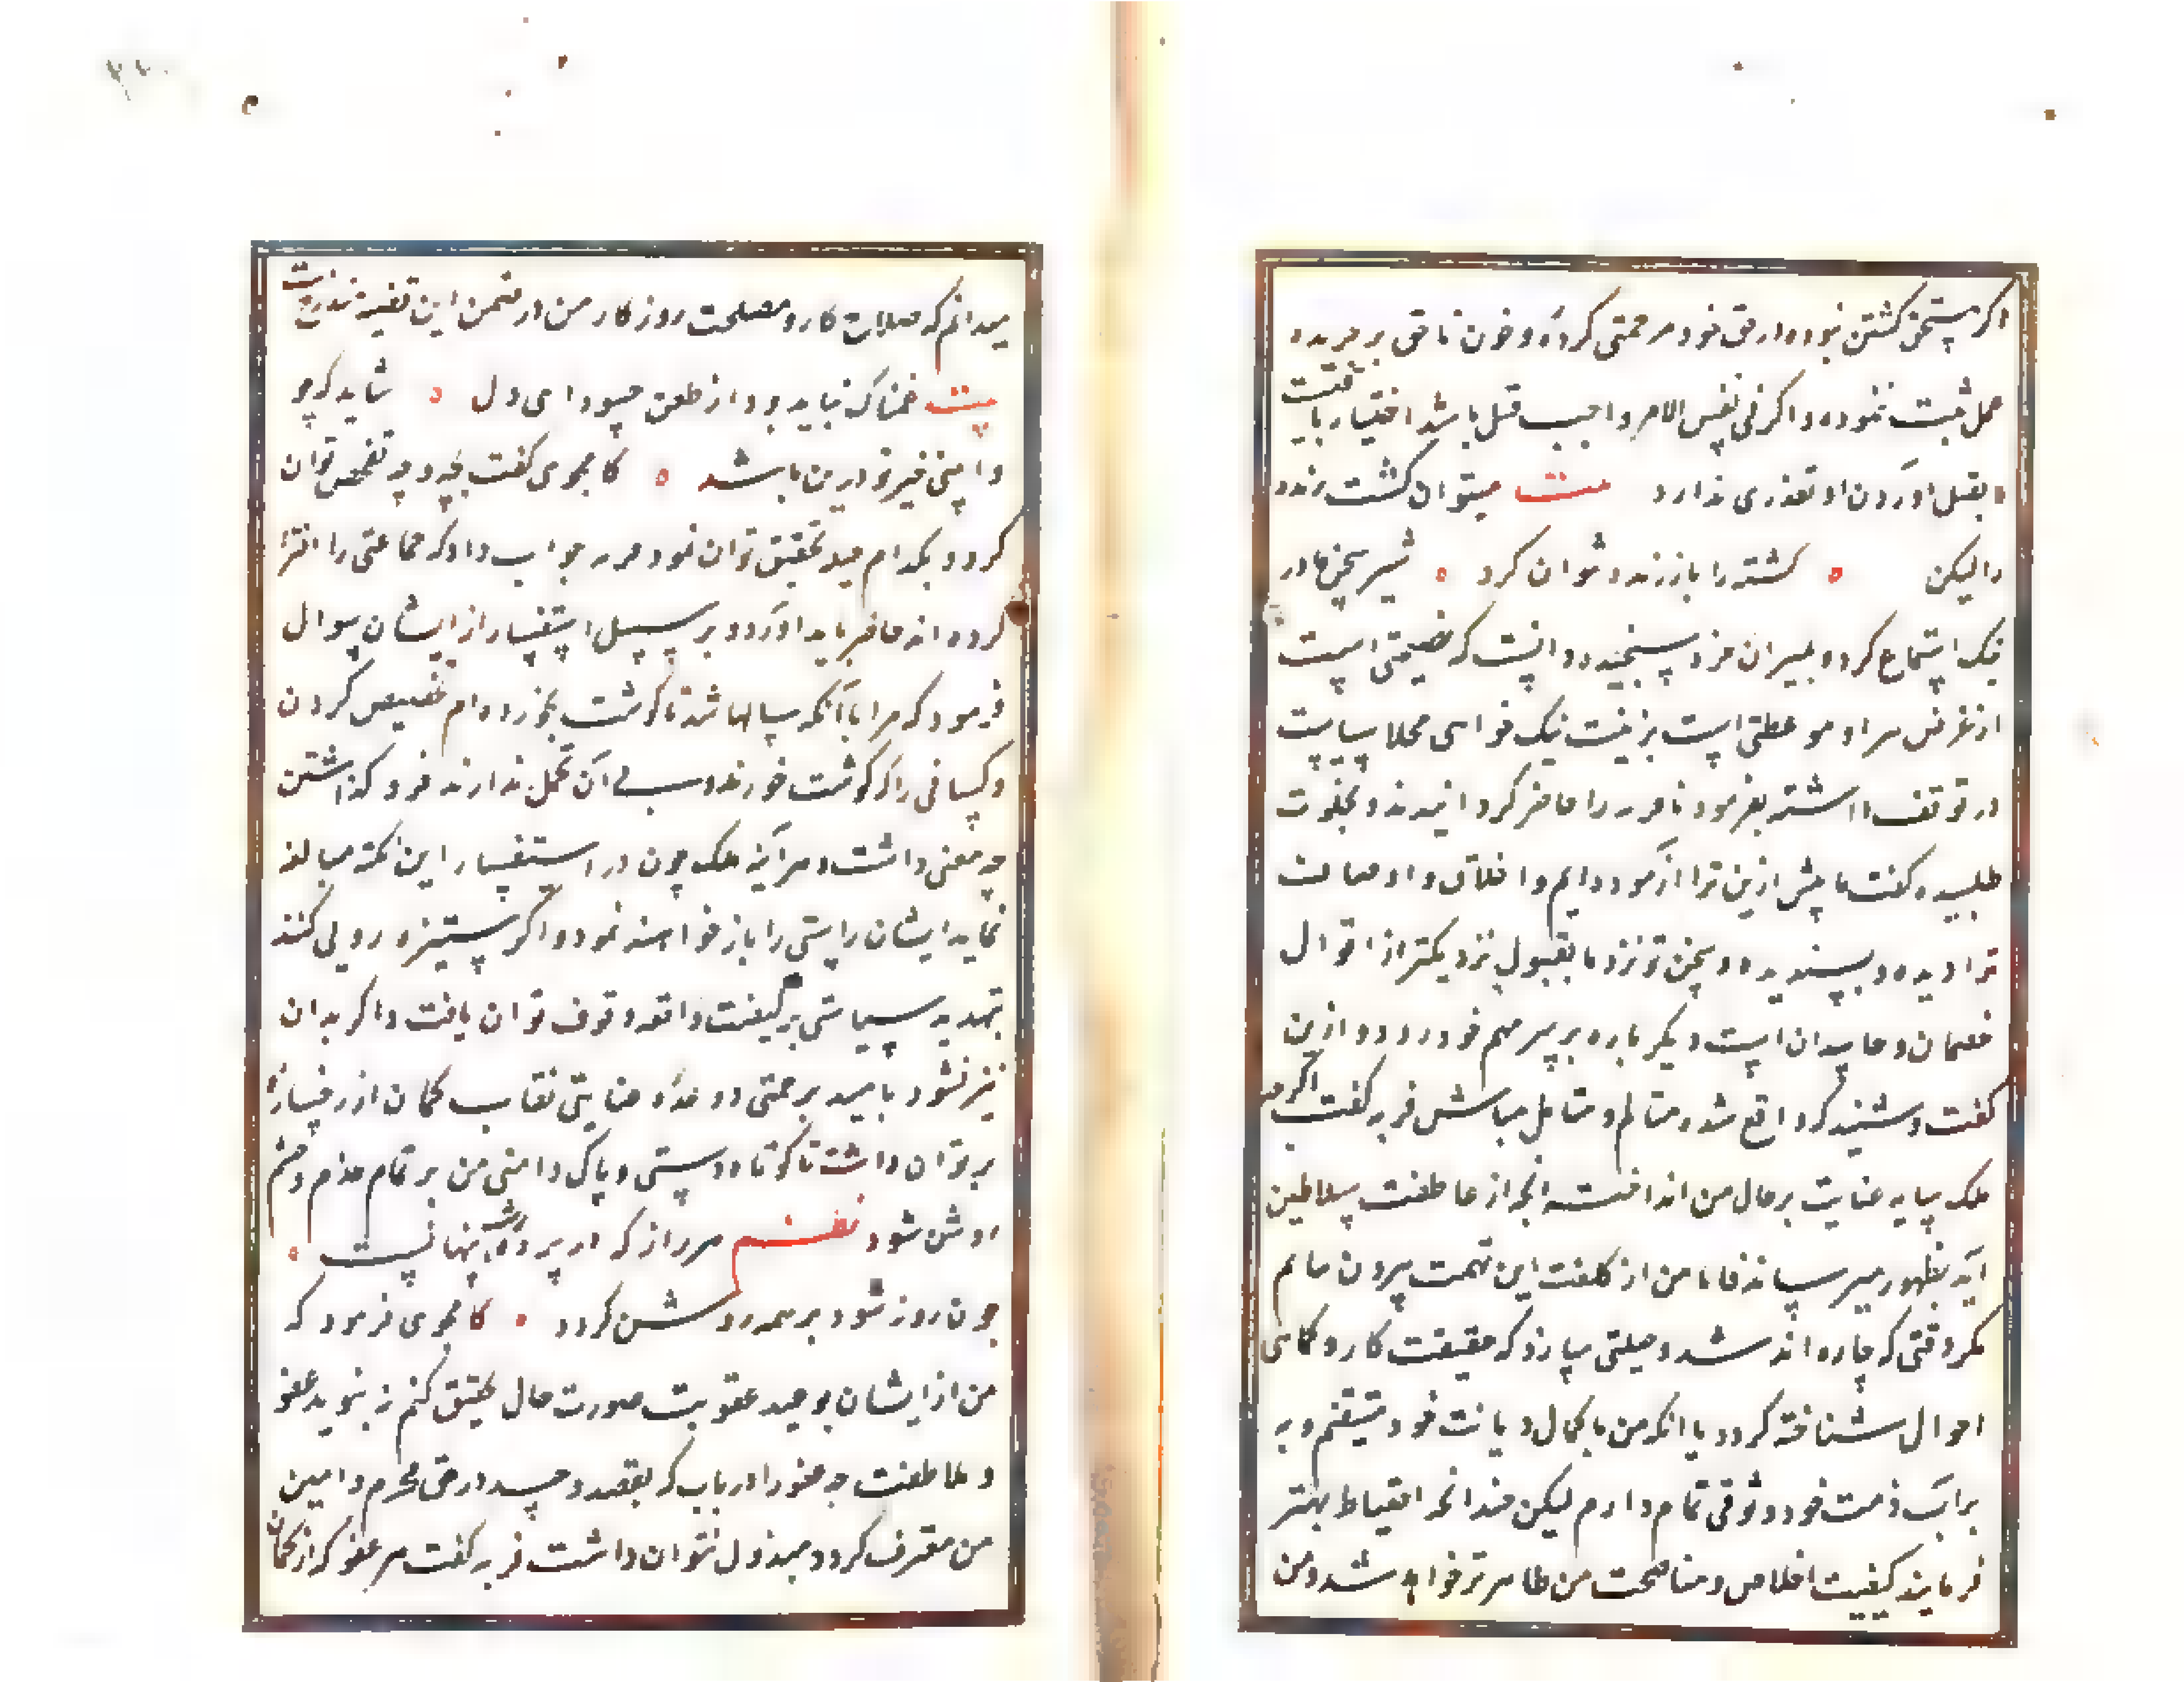 اکر مستحق کشتن نبوده در حق خود مرحمتی کرده و خون ناحق بر جریده
عمل ثبت ننموده و اکر فی نفس الامر واجب قتل باشد اختیار باقیست
و بقتل اوردن او تعذری ندارد بیت میتوان کشت زنده
را لیکن کشته را باز زنده نتوان کرد شیر سخن مادر
نیک استماع کرد و بمیزان خرد سنجیده دانست که نصیحتی است
از غرض مبرا و موعظتی است بزینت نیک خواهی محلا سیاست
در توقف داشته بفرمود تا فریسه را حاضر کردانیدند و بخلوت
طلبیده کفت ما پیش ازین ترا آزموده‌ایم و اخلاق و اوصافت
ترا دیده و پسندیده و سخن تو نزد ما بقبول نزدیکتر از اقوال
خصمان و حاسدان است دیکر باره بر سر مهم خود رو و ازین
کفت و شنید که واقع شده متالم و متامل مباش فریسه کفت اکرچه
ملک سایه عنایت بر حال من انداخت و انچه از عاطفت سلاطین
آید بظهور میرساند فاما من از کلفت این تهمت بیرون نیایم
مکر وقتی که چاره اندیشد و حیلتی سازد که حقیقت کار و کماهی
احوال شناخته کردد با انکه من بکمال دیانت خود متیقنم و به
برات ذمت خود وثوقی تمام دارم لیکن هرچند انکه احتیاط بهتر
فرمایند کیفیت اخلاص و مناصحت من ظاهرتر خواهد شد و من
میدانم که صلاح کار و مصلحت روزکار من در ضمن این قضیه مندرجست
بیت غمناک نباید بود از طعن حسود ای دل شاید که چو
وا بینی خیر تو درین باشد کامجوی کفت بچه وجه تفحص توان
کرد و بکدام حیله تحقیق توان نمود فریسه جواب داد که جماعتی را که افترا
کرده اند حاضر باید آورد و بر سبیل استفسار از ایشان سوال
فرمود که مرا با آنکه سالها شد تا کوشت نخورده‌ام تخصیص کردن
و کسانی را که کوشت خورند و بی آن تحمل ندارند فرو کذاشتن
چه معنی داشت و هرآینه ملک چون در استفسار این نکته مبالغه
نماید ایشان راستی را باز خواهند نمود و اکر ستیزه رویی کنند
بتهدید سیاستی بر کیفیت واقعه وقوف توان یافت و اکر بدان
نیز نشود بامید مرحمتی و وعده عنایتی نقاب کمان از رخسار
بر توان داشت تا کوتاه دستی و پاک دامنی من بر تمام خدم و حشم
روشن شود نظم هر راز که در پرده شب پنهانست
چون روز شود بر همه روشن کردد کامجوی فرمود که
من از ایشان بوعید عقوبت صورت حال تحقیق کنم نه بنوید عفو
و عاطفت چه عفو را در باب که بقصد و حسد در حق محرم و امین
من معترف کردد مبذول نتوان داشت فریسه کفت هر عفو که از کمال